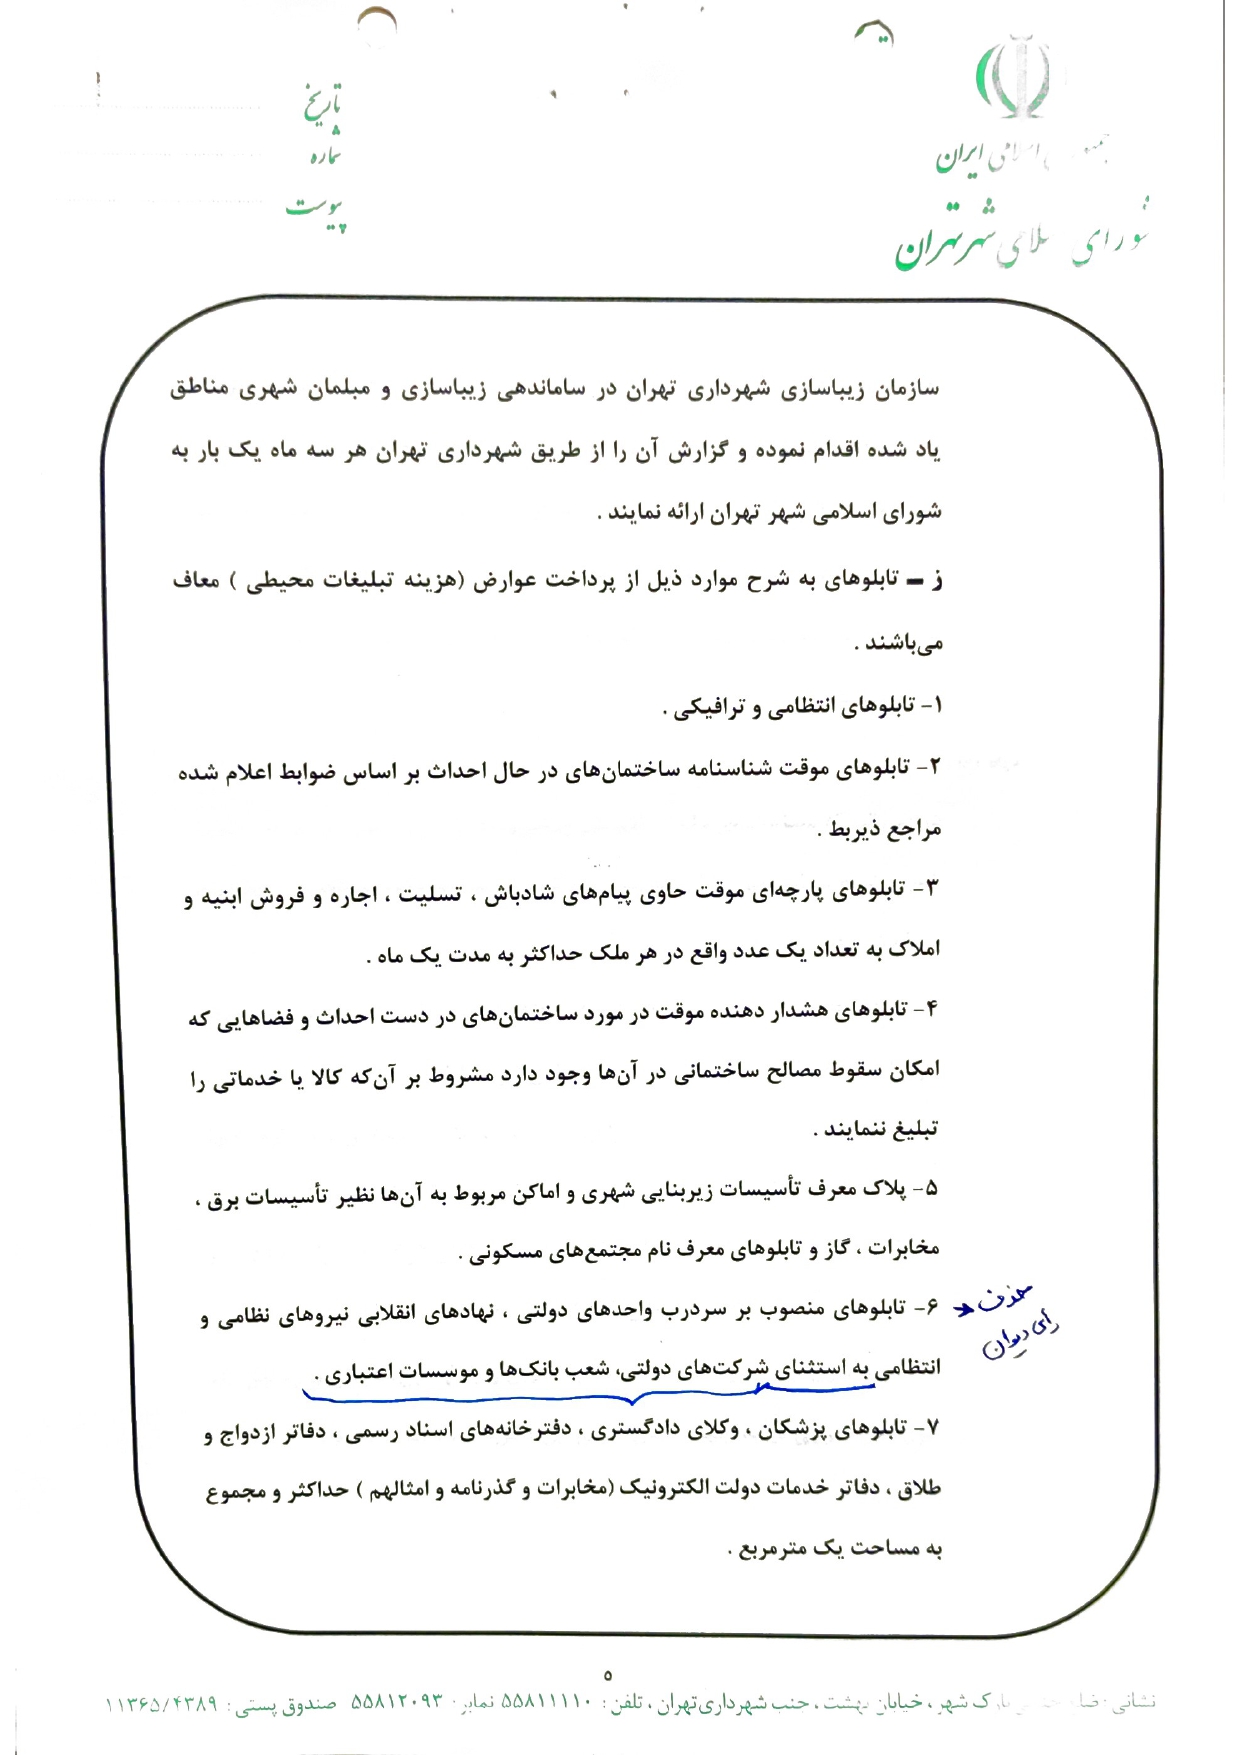 تاریخ
شماره
پیوست
ایران
شورای اسلامی شهر تهران
سازمان زیباسازی شهرداری تهران در ساماندهی زیباسازی و مبلمان شهری مناطق
یاد شده اقدام نموده و گزارش آن را از طریق شهرداری تهران هر سه ماه یک بار به
شورای اسلامی شهر تهران ارائه نمایند .
ز – تابلوهای به شرح موارد ذیل از پرداخت عوارض (هزینه تبلیغات محیطی ) معاف
می‌باشند .
۱– تابلوهای انتظامی و ترافیکی .
۲– تابلوهای موقت شناسنامه ساختمان‌های در حال احداث بر اساس ضوابط اعلام شده
مراجع ذیربط .
۳– تابلوهای پارچه‌ای موقت حاوی پیام‌های شادباش ، تسلیت ، اجاره و فروش ابنیه و
املاک به تعداد یک عدد واقع در هر ملک حداکثر به مدت یک ماه .
۴– تابلوهای هشدار دهنده موقت در مورد ساختمان‌های در دست احداث و فضاهایی که
امکان سقوط مصالح ساختمانی در آن‌ها وجود دارد مشروط بر آن‌که کالا یا خدماتی را
تبلیغ ننمایند .
۵– پلاک معرف تأسیسات زیربنایی شهری و اماکن مربوط به آن‌ها نظیر تأسیسات برق ،
مخابرات ، گاز و تابلوهای معرف نام مجتمع‌های مسکونی .
حذف
رای دیوان
۶– تابلوهای منصوب بر سردرب واحدهای دولتی ، نهادهای انقلابی نیروهای نظامی و
انتظامی به استثنای شرکت‌های دولتی، شعب بانک‌ها و موسسات اعتباری .
۷– تابلوهای پزشکان ، وکلای دادگستری ، دفترخانه‌های اسناد رسمی ، دفاتر ازدواج و
طلاق ، دفاتر خدمات دولت الکترونیک (مخابرات و گذرنامه و امثالهم ) حداکثر و مجموع
به مساحت یک مترمربع .
۵
نشانی : پارک شهر ، خیابان بهشت ، جنب شهرداری تهران ، تلفن : ۵۵۸۱۱۱۱۰ نمابر: ۵۵۸۱۲۰۹۳ صندوق پستی : ۱۱۳۶۵/۴۳۸۹